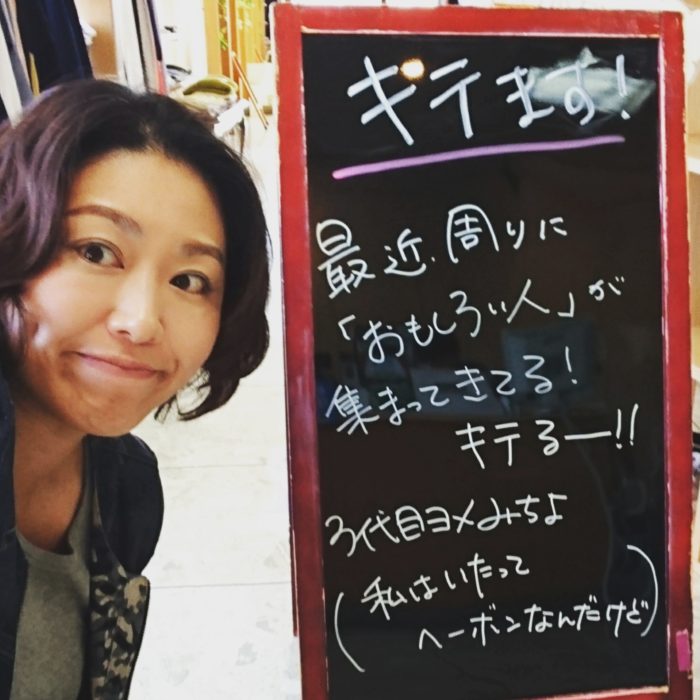 キテます!
最近、周りに
「おもしろい人」が
集まってきてる!
キテるー!!
3代目ヨメみちよ
(私はいたって
ヘーボンなんだけど)